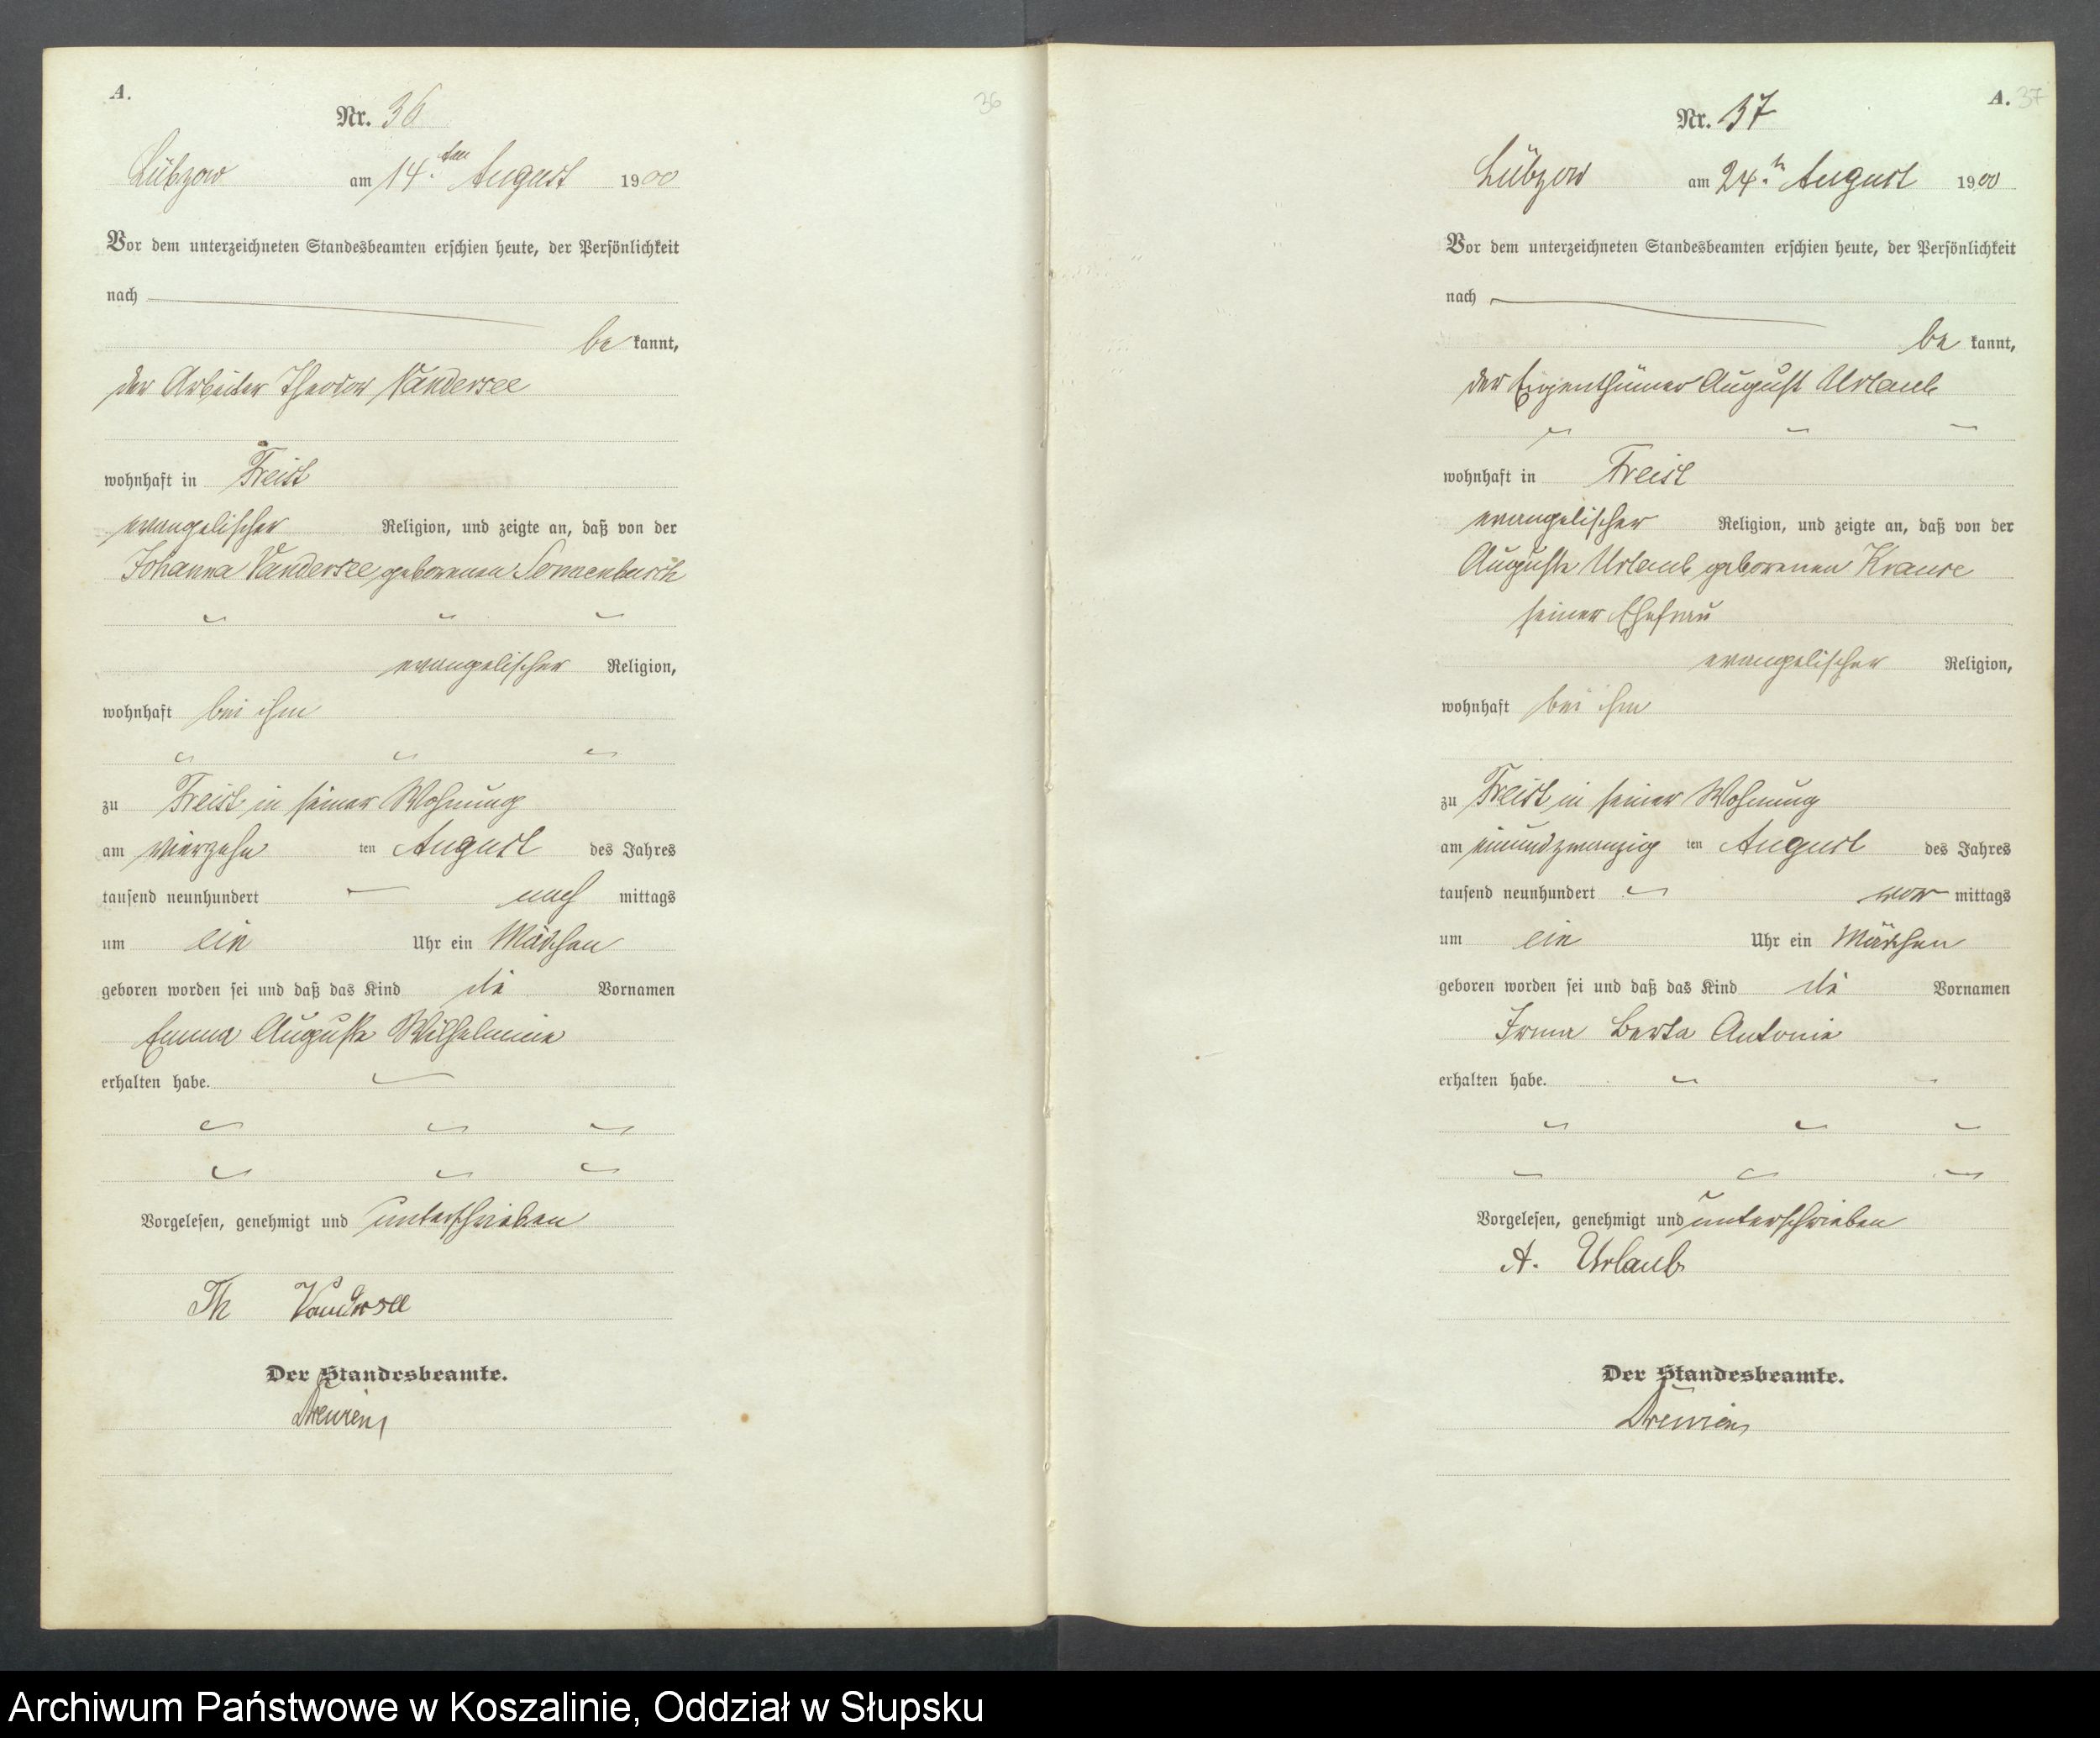 A.
36
Nr. 36
Lübzow am 14.ten August 1900
Vor dem unterzeichneten Standesbeamten erschien heute, der Persönlichkeit
nach
be kannt,
der Arbeiter Theodor Vandersee
wohnhaft in Freist
evangelischer Religion, und zeigte an, daß von der
Johanna Vandersee geborenen Sonnenbusch
evangelischer Religion,
wohnhaft bei ihm
zu Freist in seiner Wohnung
am vierzehn ten August des Jahres
tausend neunhundert nach mittags
um ein Uhr ein Mädchen
geboren worden sei und daß das Kind die Vornamen
Emma Auguste Wilhelmine
erhalten habe.
Vorgelesen, genehmigt und unterschrieben
Th Vandersee
Der Standesbeamte.
A. 37
Nr. 37
Lübzow am 24.n August 1900
Vor dem unterzeichneten Standesbeamten erschien heute, der Persönlichkeit
nach
be kannt,
der Eigenthümer August Urlaub
wohnhaft in Freist
evangelischer Religion, und zeigte an, daß von der
Auguste Urlaub geborenen Krause
seiner Ehefrau
evangelischer Religion,
wohnhaft bei ihm
zu Freist in seiner Wohnung
am einundzwanzig ten August des Jahres
tausend neunhundert vor mittags
um ein Uhr ein Mädchen
geboren worden sei und daß das Kind die Vornamen
Irma Berta Antonie
erhalten habe.
Vorgelesen, genehmigt und unterschrieben
A. Urlaub
Der Standesbeamte.
Archiwum Państwowe w Koszalinie, Oddział w Słupsku